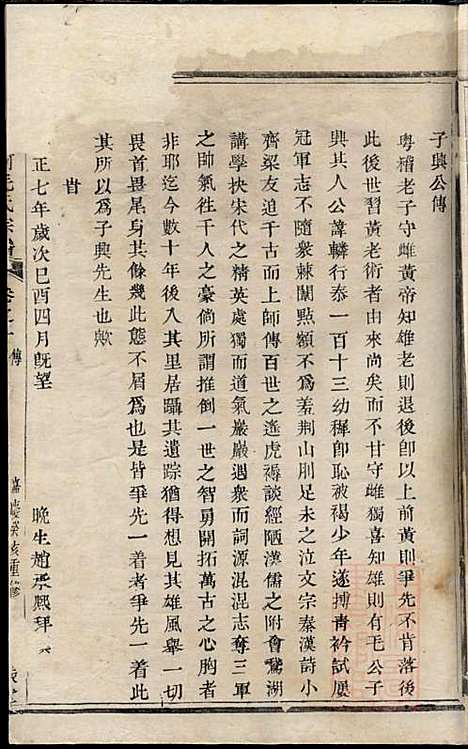 子興公傳
粵稽老子守雌黃帝知雄老則退後卽以上前黃則爭先不肯落後
此後世習黃老術者由來尚矣而不甘守雌獨喜知雄則有毛公子
興其人公諱轔行泰一百十三幼穉卽恥被褐少年遂搏青衿試屢
冠軍志不隨衆棘闈點額不爲羞荆山刖足未之泣文宗秦漢詩小
齊梁友廹千古而上師傳百世之遙虎褥談經陋漢儒之附會鵞湖
講學抉宋代之精英處獨而道氣巖巖遇衆而詞源混混志奪三軍
之帥氣徃千人之豪倘所謂推倒一世之智勇開拓萬古之心胸者
非耶迄今數十年後入其里居躡其遺踪猶得想見其雄風舉一切
畏首畏尾身其餘幾此態不屑爲也是皆爭先一着者爭先一着此
其所以爲子興先生也歟
旹
正七年歲次己酉四月旣望
晚生趙
熙拜
毛氏宗譜
卷之
傳
嘉慶癸亥重修